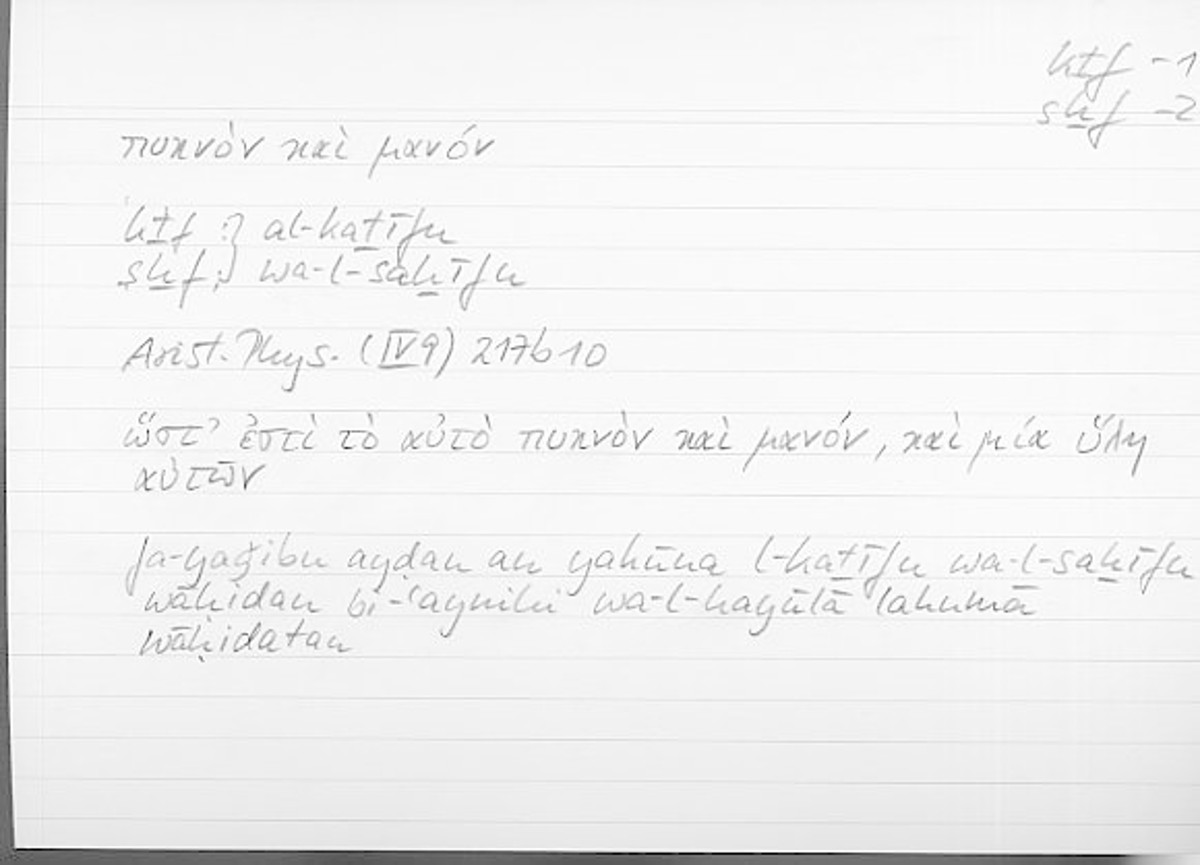 kṯf -1
sḫf -2
πυκνὸν καὶ μανόν
kṯf :} al-kaṯīfu
sḫf :} wa-l-saḫīfu
Arist. Phys. (IV 9) 217b10
ὥστ' ἐστὶ τὸ αὐτὸ πυκνὸν καὶ μανόν, καὶ μία ὕλη
αὐτῶν
fa-yaǧibu ayḍan an yakūna l-kaṯīfu wa-l-saḫīfu
wāḥidan bi-ʿaynihi wa-l-hayūlā lahumā
wāḥidatan